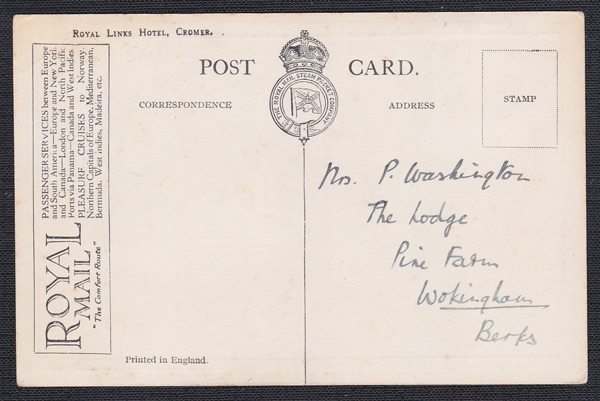 Royal Links Hotel, Cromer.
POST CARD.
THE ROYAL MAIL STEAM PACKET COMPANY
CORRESPONDENCE
ADDRESS
STAMP
PASSENGER SERVICES between Europe
and South America—Europe and New York
and Canada—London and North Pacific
Ports via Panama—Canada and West Indies
PLEASURE CRUISES to Norway
Northern Capitals of Europe, Mediterranean,
Bermuda, West Indies, Madeira, etc.
ROYAL
MAIL
"The Comfort Route"
Mrs. P. Washington
The Lodge
Pine Farm
Wokingham
Berks
Printed in England.